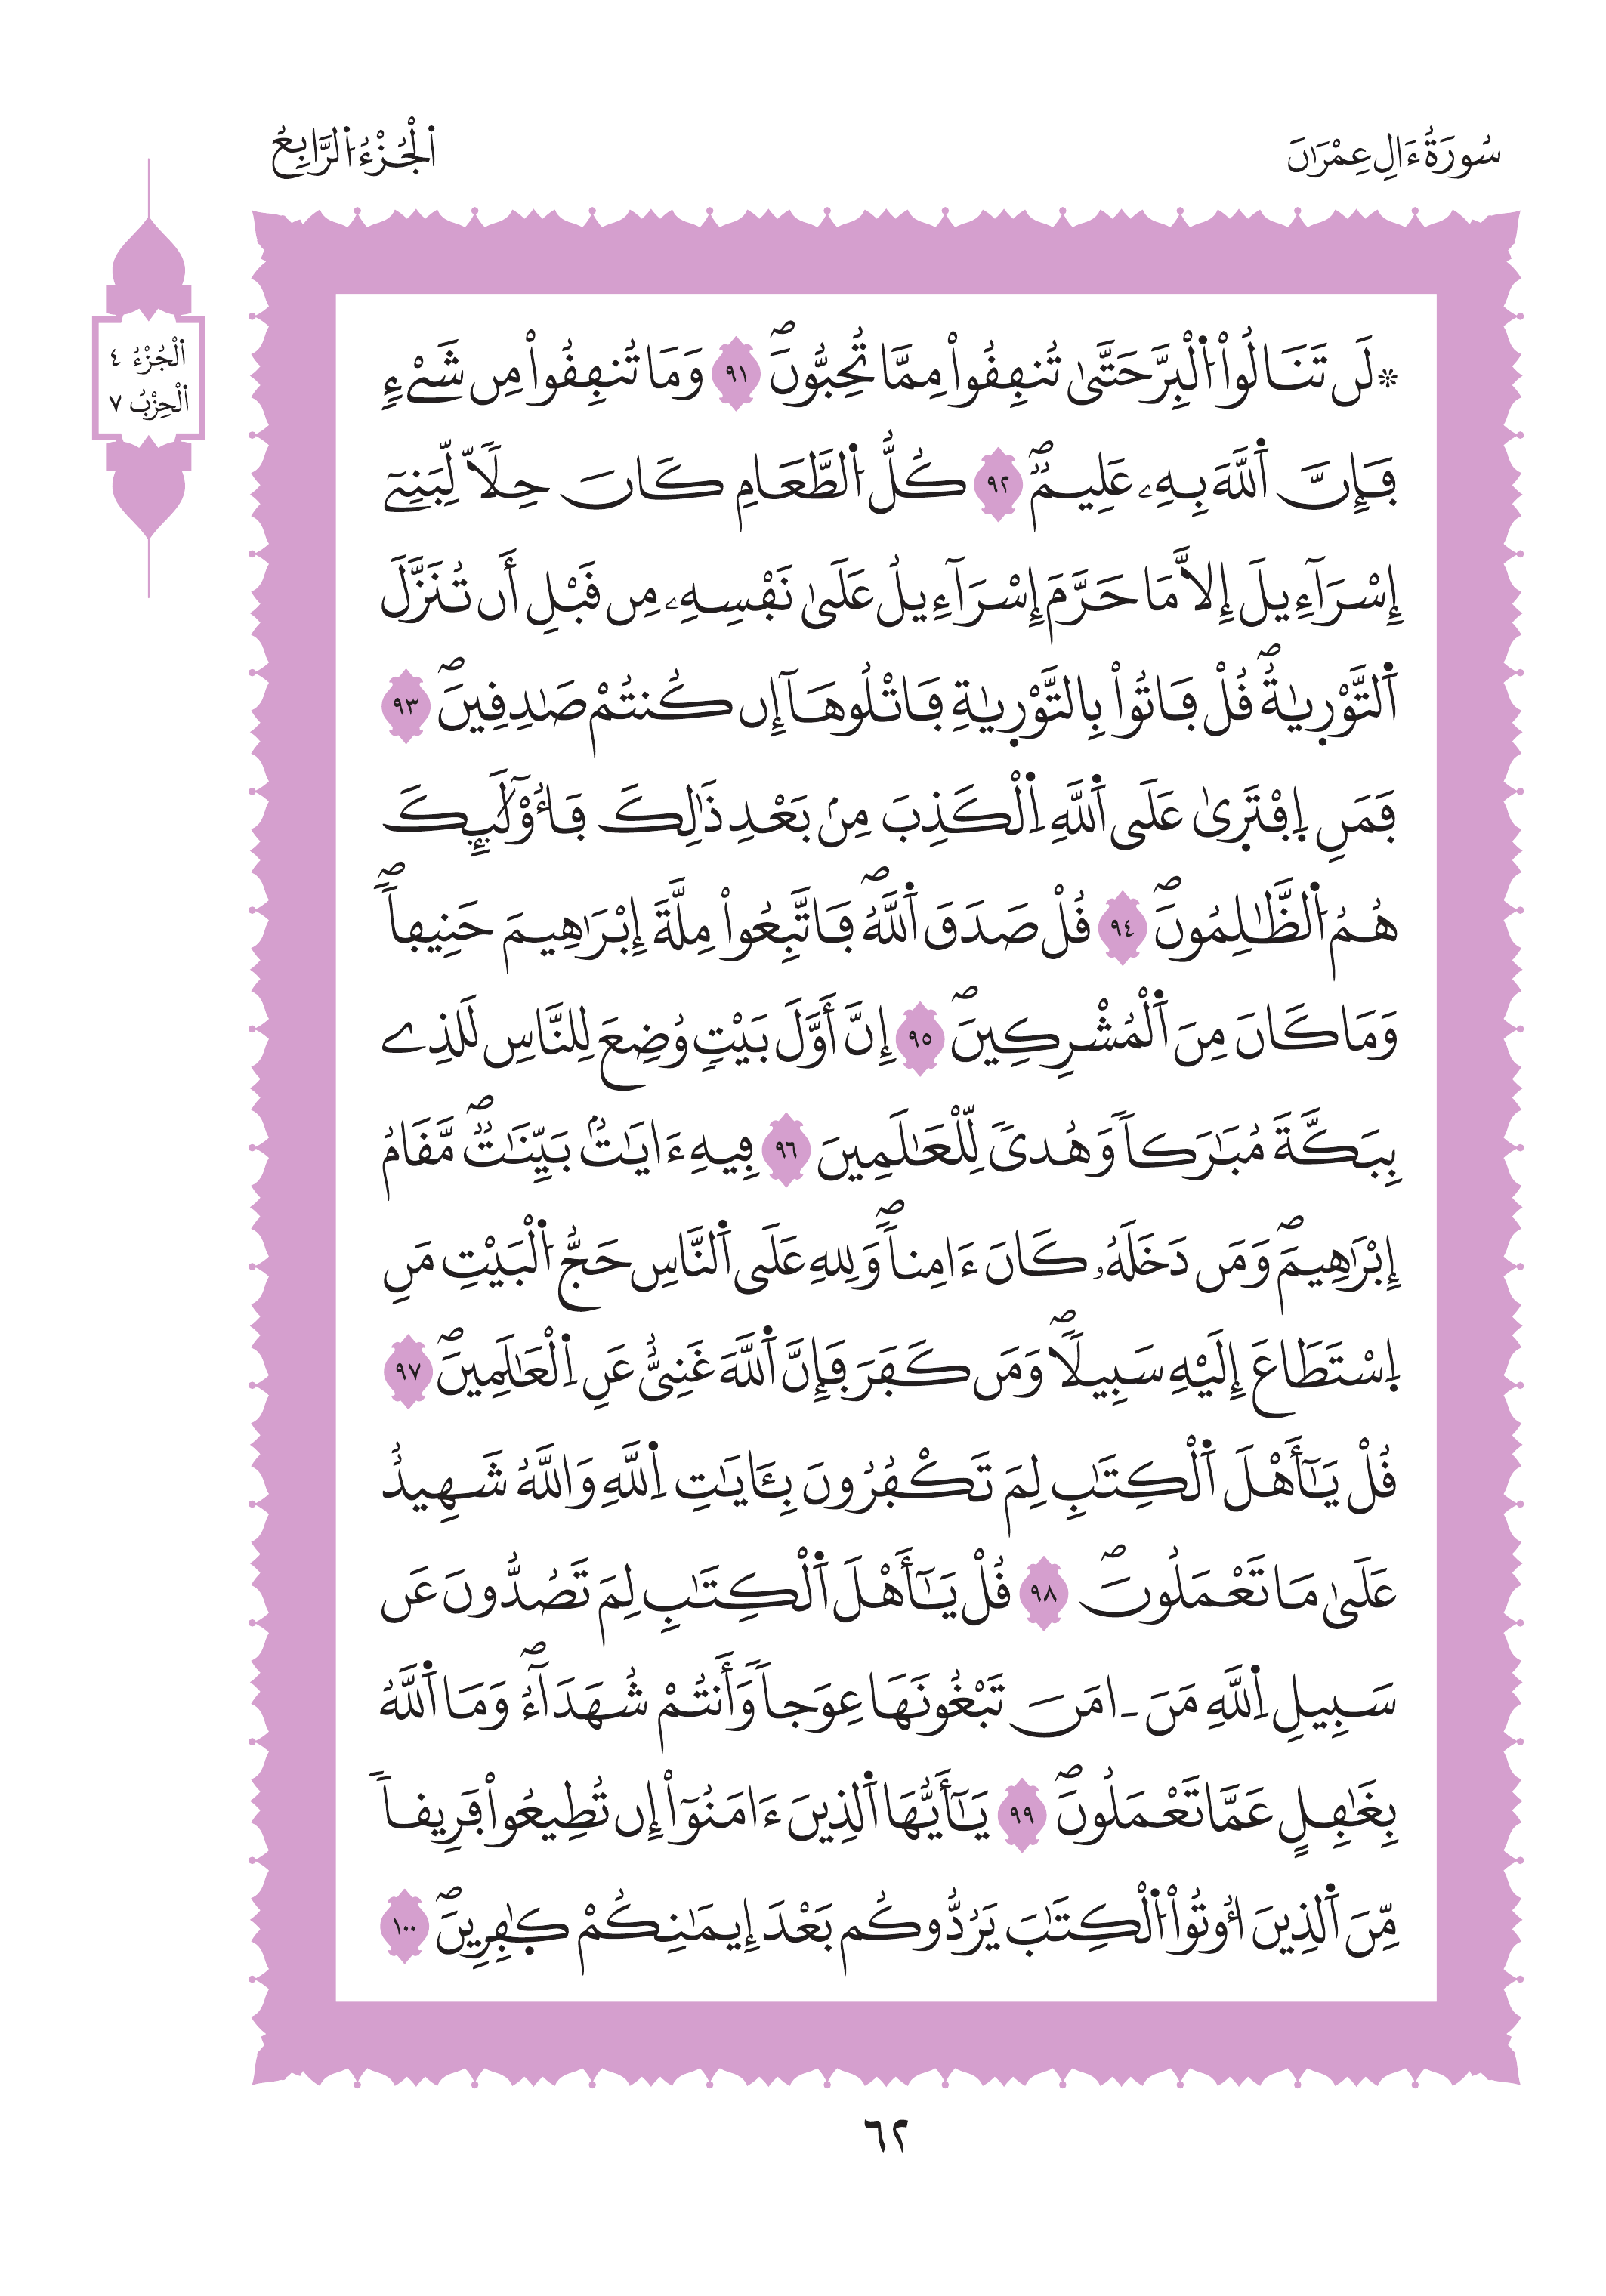 سُورَةُ ءَالِ عِمْرَٰنَ
اَ۬لْجُزْءُ اُ۬لرَّابِعُ
اَ۬لْجُزْءُ ٤
اَ۬لْحِزْبُ ٧
۞لَں تَنَالُواْ اُ۬لْبِرَّ حَتَّىٰ تُنڢِڧُواْ مِمَّا تُحِبُّونَۖ ٩١ وَمَا تُنڢِڧُواْ مِں شَےْءٖ
ڢَإِنَّ اَ۬للَّهَ بِهِۦ عَلِيمٞۖ ٩٢ كُلُّ اُ۬لطَّعَامِ كَانَ حِلّاٗ لِّبَنِےٓ
إِسْرَآءِيلَ إِلَّا مَا حَرَّمَ إِسْرَآءِيلُ عَلَىٰ نَڢْسِهِۦ مِں ڧَبْلِ أَں تُنَزَّلَ
اَ۬لتَّوْرٜىٰةُۖ ڧُلْ ڢَاتُواْ بِالتَّوْرٜىٰةِ ڢَاتْلُوهَآ إِں كُنتُمْ صَٰدِڧِينَۖ ٩٣
ڢَمَنِ اِ۪ڢْتَر۪ىٰ عَلَى اَ۬للَّهِ اِ۬لْكَذِبَ مِنۢ بَعْدِ ذَٰلِكَ ڢَأُوْلَٰٓئِكَ
هُمُ اُ۬لظَّٰلِمُونَۖ ٩٤ ڧُلْ صَدَقَ اَ۬للَّهُۖ ڢَاتَّبِعُواْ مِلَّةَ إِبْرَٰهِيمَ حَنِيڢاٗۖ
وَمَا كَانَ مِنَ اَ۬لْمُشْرِكِينَۖ ٩٥ إِنَّ أَوَّلَ بَيْتٖ وُضِعَ لِلنَّاسِ لَلَّذِے
بِبَكَّةَ مُبَٰرَكاٗ وَهُدىٗ لِّلْعَٰلَمِينَ ٩٦ ڢِيهِ ءَايَٰتُۢ بَيِّنَٰتٞۖ مَّڧَامُ
إِبْرَٰهِيمَۖ وَمَں دَخَلَهُۥ كَانَ ءَامِناٗۖ وَلِلهِ عَلَى اَ۬لنَّاسِ حَجُّ اُ۬لْبَيْتِ مَنِ
اِ۪سْتَطَاعَ إِلَيْهِ سَبِيلاٗۖ وَمَں كَڢَرَ ڢَإِنَّ اَ۬للَّهَ غَنِيٌّ عَنِ اِ۬لْعَٰلَمِينَۖ ٩٧
ڧُلْ يَٰٓأَهْلَ اَ۬لْكِتَٰبِ لِمَ تَكْڢُرُونَ بِـَٔايَٰتِ اِ۬للَّهِ وَاللَّهُ شَهِيدٌ
عَلَىٰ مَا تَعْمَلُونَۖ ٩٨ ڧُلْ يَٰٓأَهْلَ اَ۬لْكِتَٰبِ لِمَ تَصُدُّونَ عَں
سَبِيلِ اِ۬للَّهِ مَنَ ـ امَنَ تَبْغُونَهَا عِوَجاٗ وَأَنتُمْ شُهَدَآءُۖ وَمَا اَ۬للَّهُ
بِغَٰڢِلٍ عَمَّا تَعْمَلُونَۖ ٩٩ يَٰٓأَيُّهَا اَ۬لذِينَ ءَامَنُوٓاْ إِں تُطِيعُواْ ڢَرِيڧاٗ
مِّنَ اَ۬لذِينَ أُوتُواْ اُ۬لْكِتَٰبَ يَرُدُّوكُم بَعْدَ إِيمَٰنِكُمْ كٰٜڢِرِينَۖ ١٠٠
٦٢